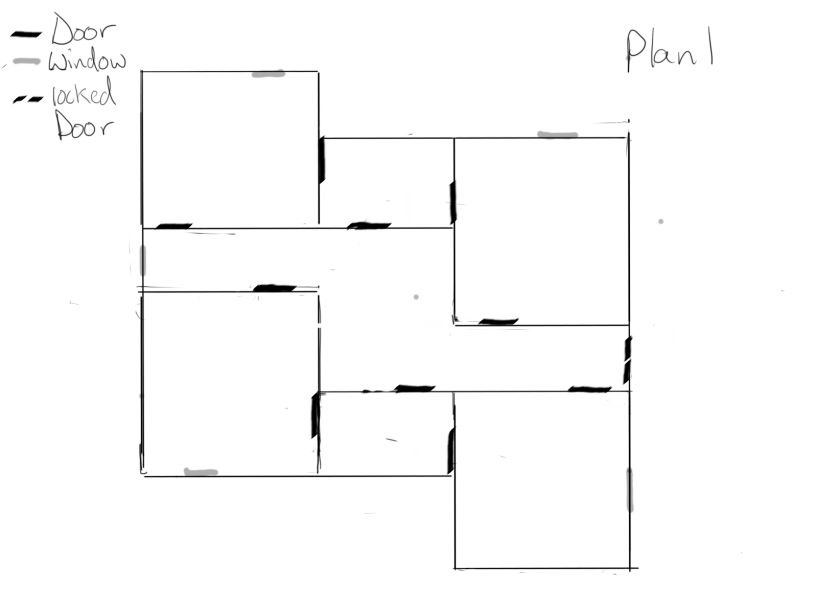 Door
Window
locked
Door
Plan 1